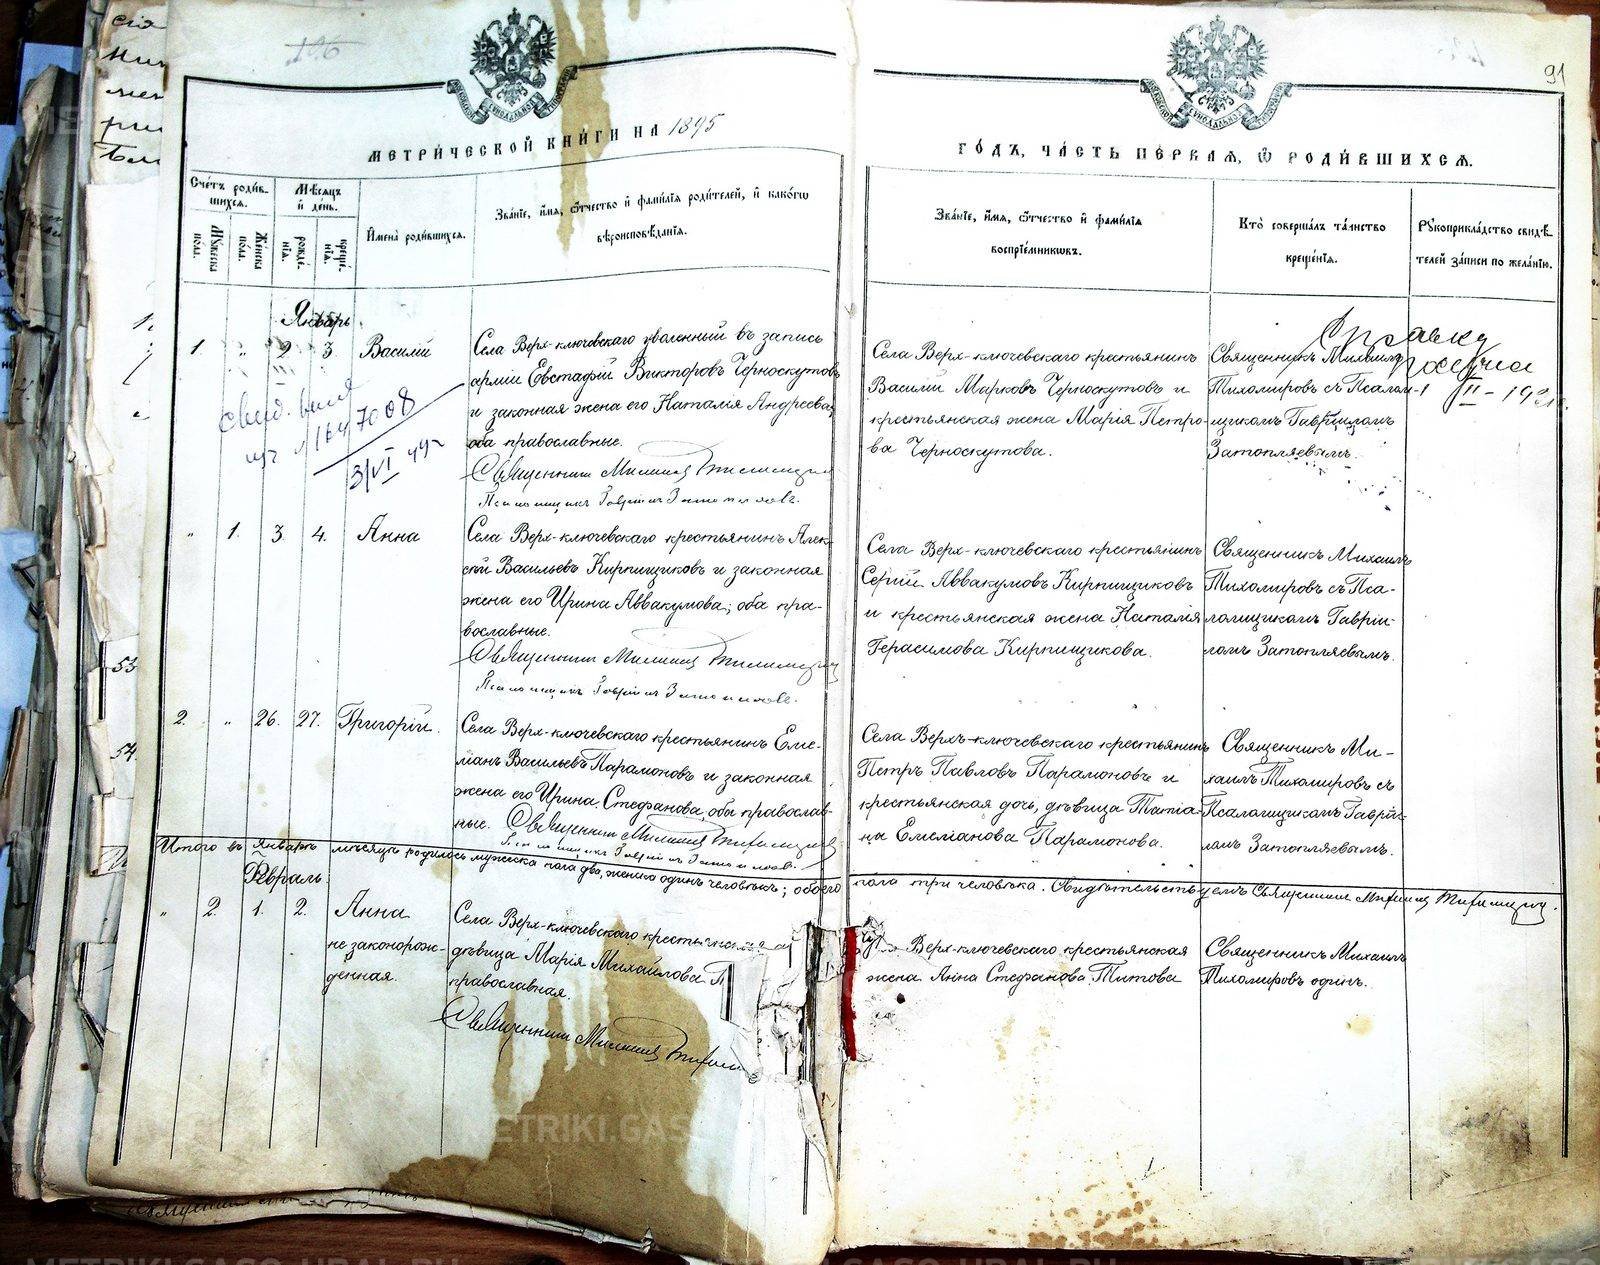 91
МЕТРИ́ЧЕСКОЙ КНИ́ГИ НА 1895
ГО́ДЪ, ЧА́СТЬ ПЕ́РВАЯ, Ѽ РОДИ́ВШИХСЯ.
Сче́тъ роди́в-
шихся.
Му́жеска по́ла.
Же́нска по́ла.
Мѣ́сяцъ и де́нь.
рожде́нїя.
креще́нїя.
И҆мена̀ роди́вшихся.
Зва́нїе, и҆́мя, ѻ҆́тчество и҆ фами́лїя роди́телей, и҆ како́гѡ
вѣроисповѣ́данїя.
Зва́нїе, и҆́мя, ѻ҆́тчество и҆ фами́лїя
воспрїе́мникѡвъ.
Кто̀ соверша́лъ та́инство
креще́нїя.
Рꙋкоприкла́дство свидѣ́-
телей за́писи по жела́нїю.
Январь
1. " 2 3. Василій
Села Верх-ключевскаго уволенный въ запись
арміи Евстафій Викторовъ Черноскутовъ
и законная жена его Наталія Андреева,
оба православные.
Священникъ Михаилъ Тихомировъ
Псаломщикъ Гавріилъ Затопляевъ.
Села Верх-ключевскаго крестьянинъ
Василій Марковъ Черноскутовъ и
крестьянская жена Марія Петро-
ва Черноскутова.
Священникъ Михаилъ
Тихомировъ съ Псалом-
щикомъ Гавріиломъ
Затопляевымъ.
Справку
1 II - 1931
1647008
3/VI
" 1. 3. 4. Анна
Села Верх-ключевскаго крестьянинъ Алек-
сѣй Васильевъ Кирпищиковъ и законная
жена его Ирина Аввакумова; оба пра-
вославные.
Священникъ Михаилъ Тихомировъ
Псаломщикъ Гавріилъ Затопляевъ.
Села Верх-ключевскаго крестьянинъ
Сергій Аввакумовъ Кирпищиковъ
и крестьянская жена Наталія
Герасимова Кирпищикова.
Священникъ Михаилъ
Тихомировъ съ Пса-
ломщикомъ Гаврiи-
ломъ Затопляевымъ.
2. " 26. 27. Григорій.
Села Верх-ключевскаго крестьянинъ Еме-
льянъ Васильевъ Парамоновъ и законная
жена его Ирина Стефанова, оба православ-
ные. Священникъ Михаилъ Тихомировъ
Псаломщикъ Гавріилъ Затопляевъ.
Села Верхъ-ключевскаго крестьянинъ
Петръ Павловъ Парамоновъ и
крестьянская дочь, дѣвица Татіа-
на Емеліанова Парамонова.
Священникъ Ми-
хаилъ Тихомировъ съ
Псаломщикомъ Гавріи-
ломъ Затопляевымъ.
Итого въ Январѣ мѣсяцѣ родилось мужска пола два, женска одинъ человѣкъ; обоего пола три человѣка. Свидѣтельствуемъ Священникъ Михаилъ Тихомировъ.
Февраль.
" 2. 1. 2. Анна
не законорож-
денная.
Села Верх-ключевскаго крестьянская
дѣвица Марія Михайлова
православная.
Священникъ Михаилъ
Верх-ключевскаго крестьянская
жена Анна Стефанова Титова
Священникъ Михаилъ
Тихомировъ одинъ.
53
54
METRIKI.GASO-URAL.RU